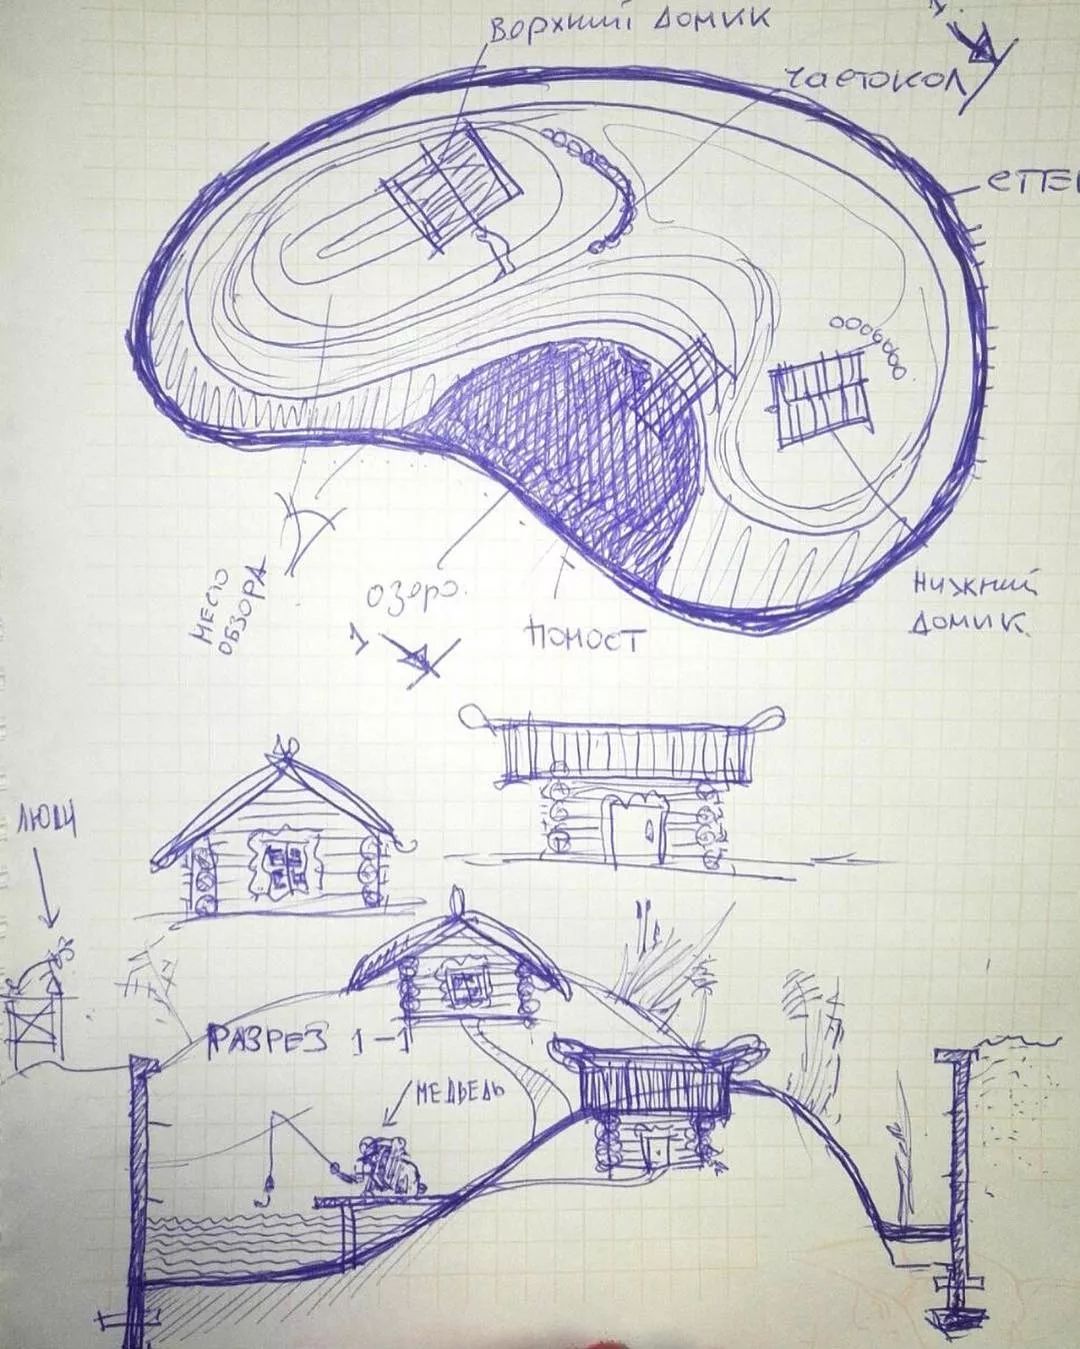 1
ВЕРХНИЙ ДОМИК
ЧАСТОКОЛ
МЕСТО
ОБЗОРА
ОЗЕРО.
1
ПОМОСТ
НИЖНИЙ
ДОМИК
ЛЮДИ
РАЗРЕЗ 1-1
МЕДВЕДЬ